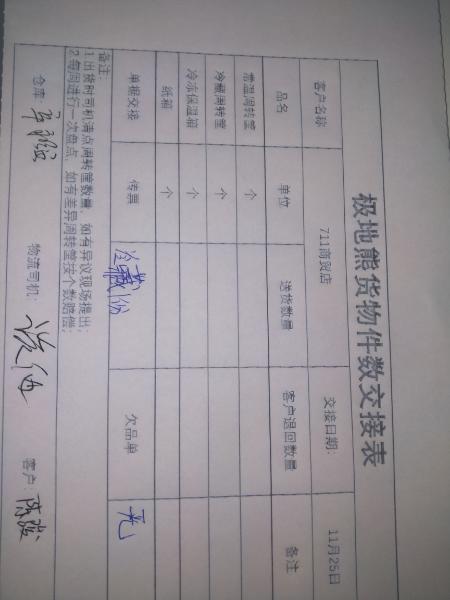 极地熊货物件数交接表
客户名称 711商贸店 交接日期: 11月25日
品名 单位 送货数量 客户退回数量 备注
常温周转筐 个
冷藏周转筐 个
冷冻保温箱 个
纸箱 个
单据交接 传票 冷藏1份 欠品单 无
备注:
1.出货时司机清点周转筐数量,如有异议现场提出;
2.每周进行一次盘点,如有差异周转筐按个数赔偿;
仓库: 物流司机: 客户: 陈